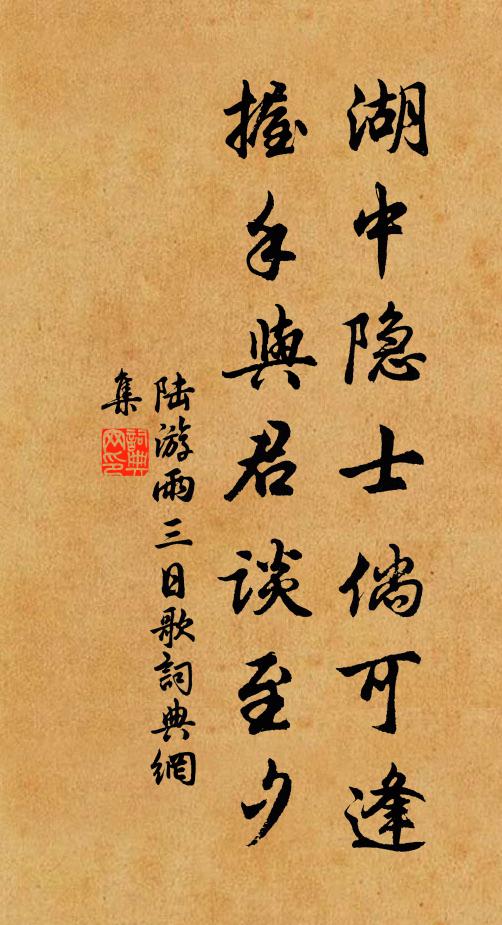 湖中隐士倘可逢
握手與君談至夕
陆游雨三日歌詞典網
集
詞典
网印